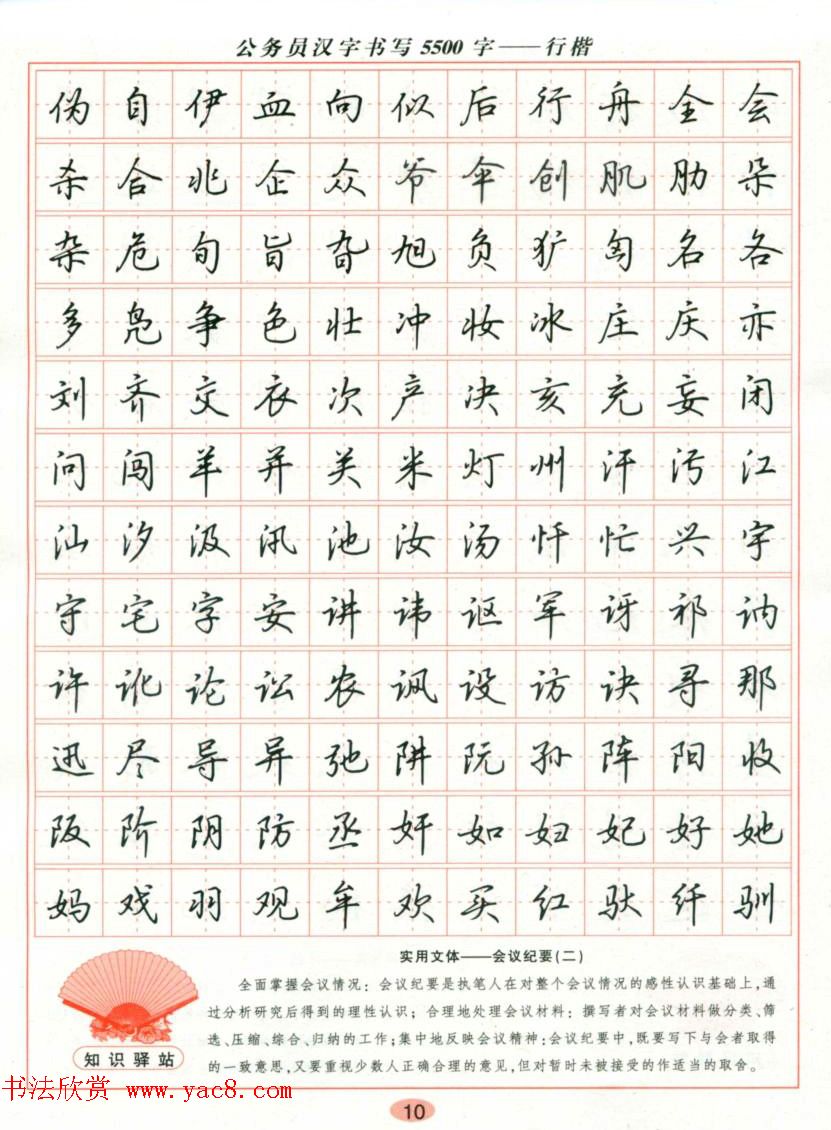 公务员汉字书写5500字——行楷
伪自伊血向似后行舟全会
杀合兆企众爷伞创肌肋朵
杂危旬旨旮旭负犷匈名各
多凫争色壮冲妆冰庄庆亦
刘齐交衣次产决亥充妄闭
问闯羊并关米灯州汗污江
汕汐汲汛池汝汤忏忙兴宇
守宅字安讲讳讴军讶祁讷
许讹论讼农讽设访诀寻那
迅尽导异弛阱阮孙阵阳收
阪阶阴防丞奸如妇妃好她
妈戏羽观牟欢买红驮纤驯
实用文体——会议纪要(二)
全面掌握会议情况：会议纪要是执笔人在对整个会议情况的感性认识基础上,通
过分析研究后得到的理性认识；合理地处理会议材料：撰写者对会议材料做分类、筛
选、压缩、综合、归纳的工作;集中地反映会议精神:会议纪要中,既要写下与会者取得
的一致意思,又要重视少数人正确合理的意见,但对暂时未被接受的作适当的取舍。
知识驿站
书法欣赏 www.yac8.com
10